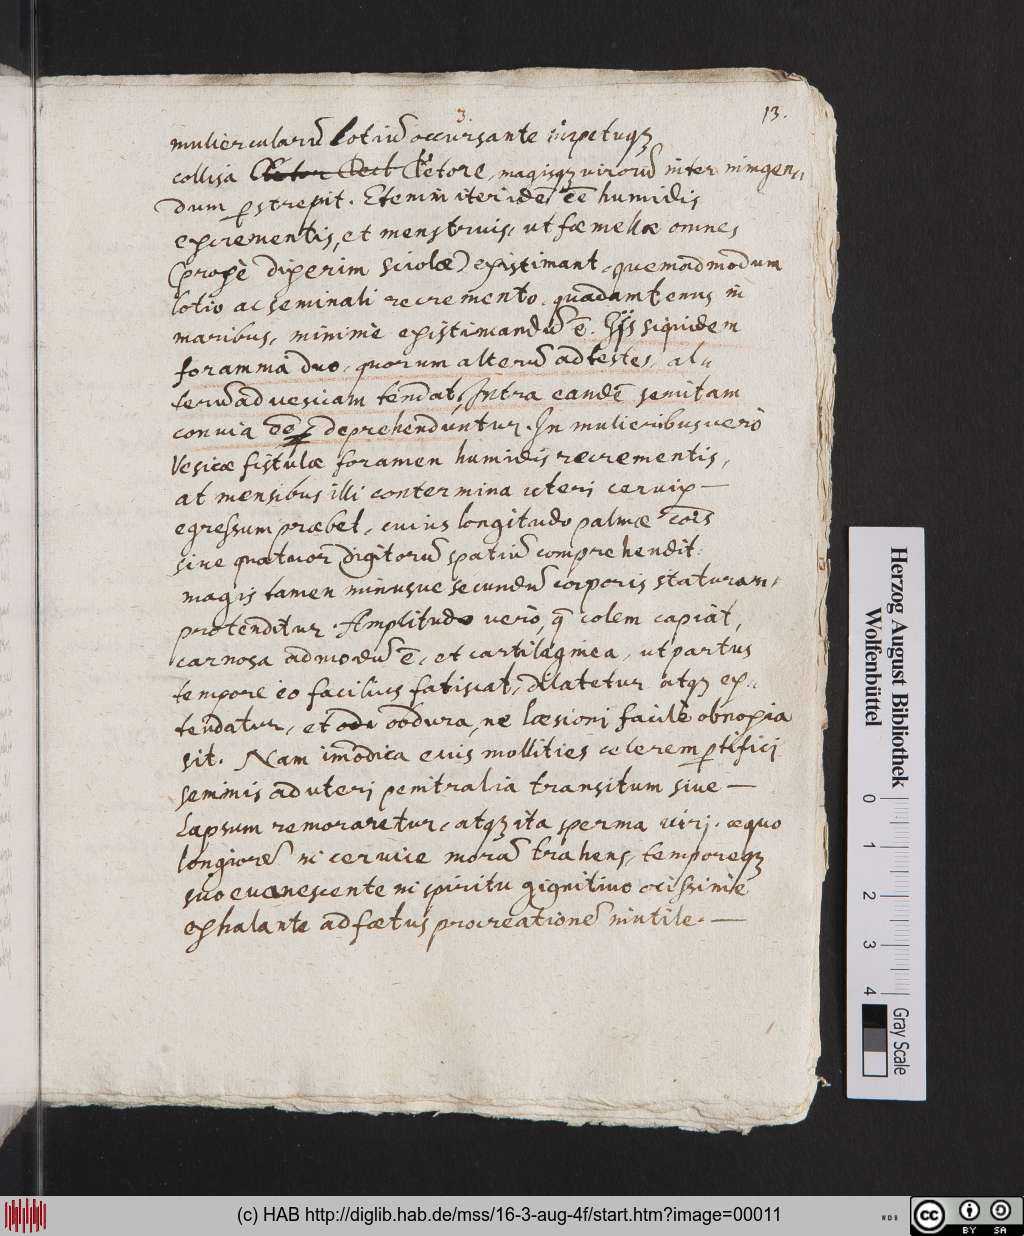 3.
13.
muliercularū lotiū occursante impetuq
collisa stetore, magisq virorū inter mingen
dum pstrepit. Etenim iter idē eē humidis
excrementis, et menstruis, ut fœmellæ omnes
(propè dixerim sciolæ) existimant, quemadmodum
lotio ac seminali recremento quadamtenus in
maribus, minimè existimandū ē. Ijs siquidem
foramina duo, quorum alterū ad testes, al
terū ad vesicam tendat, Intra eandē semitam
convia deprehenduntur. In mulieribus verò
Vesicæ fistulæ foramen humidis recrementis,
at mensibus illi contermina uteri cervix —
egressum præbet, cuius longitudo palmæ cōis
sive quatuor digitorū spatiū comprehendit.
magis tamen minusve secundū corporis staturam,
protenditur. Amplitudo verò, q̄ colem capiat,
carnosa admodū ē, et cartilaginea, ut partus
tempore eo facilius fatiscat, dilatetur atq ex
tendatur, et obdura, ne læsioni facile obnoxia
sit. Nam imodica eius mollities celerem ptifici
seminis ad uteri penitralia transitum sive —
Lapsum remoraretur, atq ita sperma virj, æquo
longiorē in cervice morā trahens, temporeq
suo evanescente in spiritu gignitivo ocissimè
exhalante ad fœtus procreationē inutile. —
Herzog August Bibliothek
Wolfenbüttel
0 1 2 3 4
Gray Scale
(c) HAB http://diglib.hab.de/mss/16-3-aug-4f/start.htm?image=00011
cc BY SA